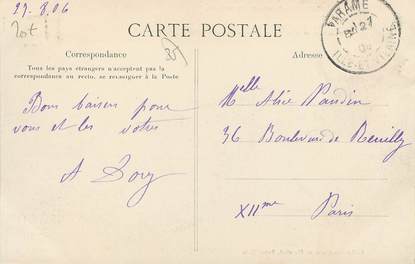 27.8.06
CARTE POSTALE
Correspondance
Tous les pays étrangers n'acceptent pas la
correspondance au recto, se renseigner à la Poste
Bons baisers pour
vous et les votres
A Dory
Adresse
PARAMÉ
ILLE-ET-VILAINE
Melle Alice Vandin
36 Boulevard de Reuilly
XIIme Paris